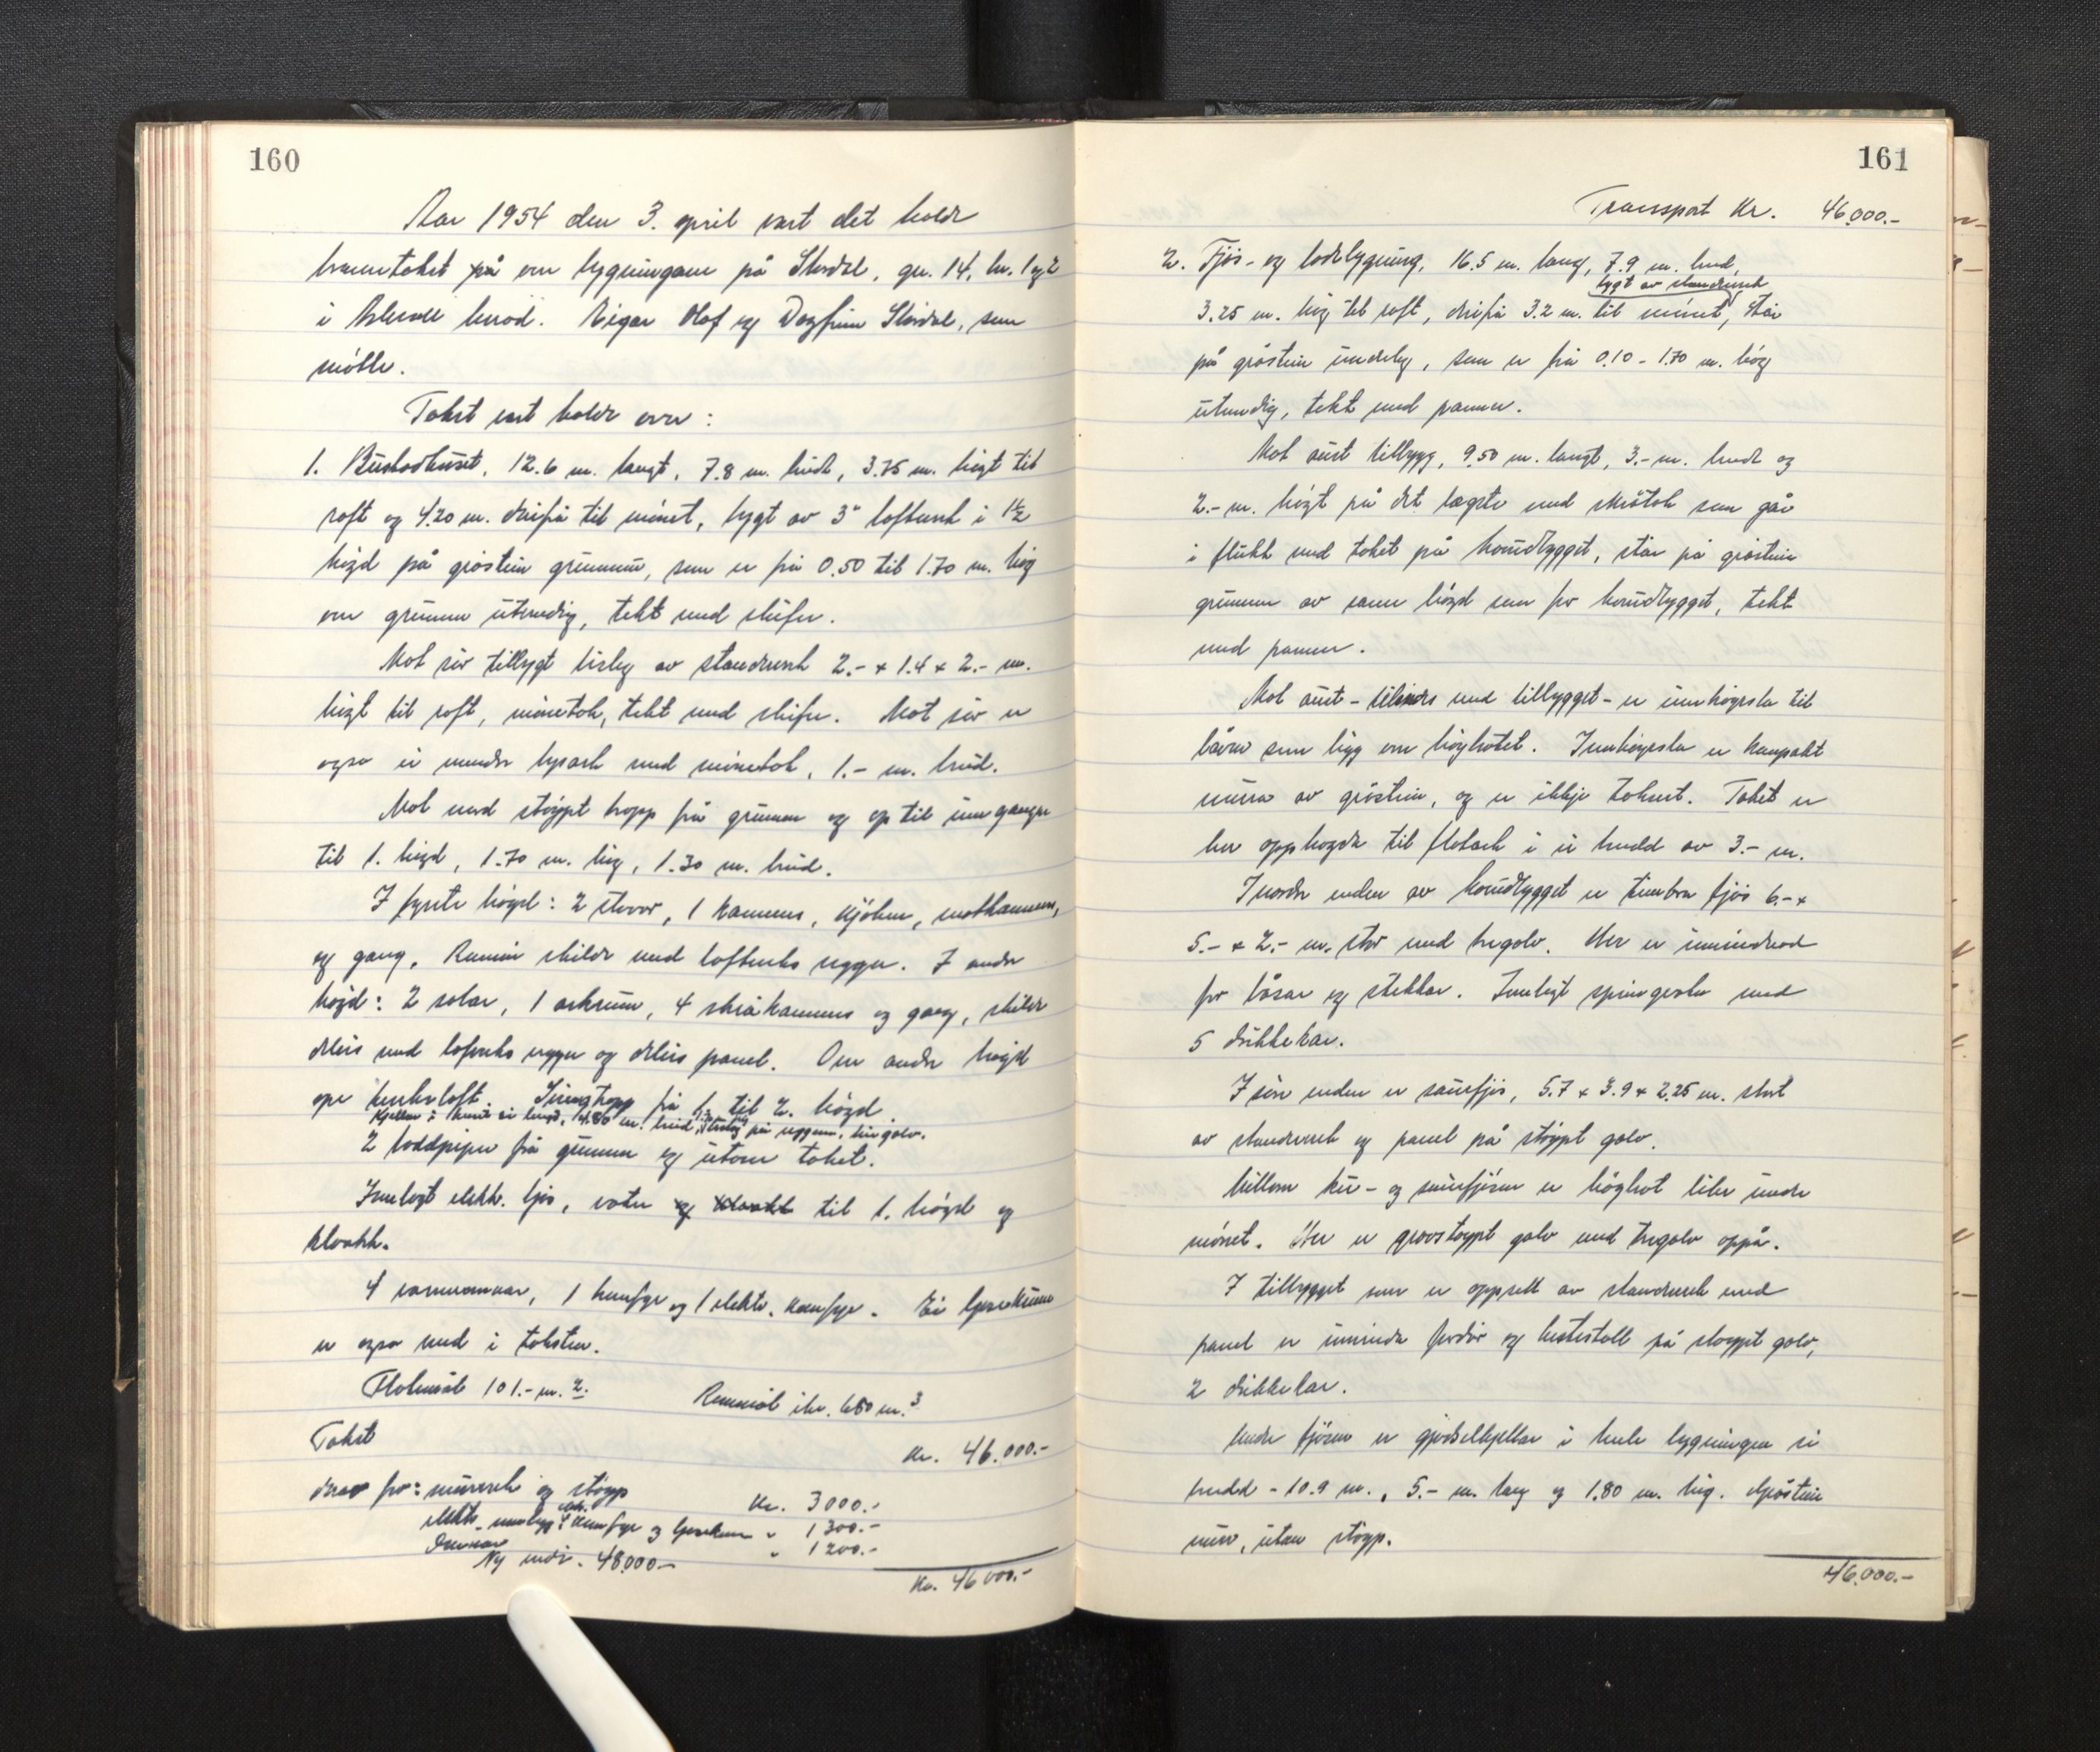 160
Aar 1954 den 3. april vart det halde
branntakst på om bygningane på Stordal, gn. 14, bn. 1 og 2
i herad. Eigar Olaf og Dagfinn Stordal, som
møtte.
Takst vart halde over:
1. Bustadhuset, 12.6 m. langt, 7.8 m. breidt, 3.75 m. høgt til
roft og 4.20 m. derifrå til mønet, bygt av 3" loftverk i 1½
høgd på gråstein grunnmur, som er frå 0.50 til 1.70 m. høg
over grunnen utvendig, tekt med skifer.
Mot sør tilbygt bislag av standverk 2.- x 1.4 x 2.- m.
høgt til roft, mønetak, tekt med skifer. Mot sør er
også ei mindre lysark med mønetak, 1.- m. breid.
Mot nord støypt tropp frå grunnen og op til inngangen
til 1. høgd, 1.70 m. høg, 1.30 m. breid.
I fyrste høgd: 2 stover, 1 kammers, kjøken, matkammers,
og gang. Rummi skilde med loftverks vegger. I andre
høgd: 2 salar, 1 arkrum, 4 skråkammers og gang, skilde
dels med loftverks vegger og dels panel. Over andre høgd
ope haneloft. Svingtropp frå 1. til 2. høgd.
Kjellar i husets breidd, 4.80 m. breid, på veggene, golv.
2 loddpiper frå grunnen og utover taket.
Innlagt elektr. ljos, vatn og kloakk til 1. høgd og
kloakk.
4 varmeomnar, 1 komfyr og 1 elektr. komfyr. Ei
er også med i taksten.
Flatemål 101.- m.2. Rummål ikr. 680 m.3
Takst kr. 46.000.-
derav for: murverk og støyp kr. 3000.-
elektr. innlegg, elektr. komfyr og " 1300.-
Omnar " 1200.-
Ny verdi. 48000.-
Kr. 46000.-
161
Transport Kr. 46.000.-
2. Fjøs- og lødebygning, 16.5 m. lang, 7.9 m. breid,
bygt av standverk
3.25 m. høg til roft, derifrå 3.2 m. til mønet, står
på gråstein underlag, som er frå 0.10 - 1.70 m. høg
utvendig, tekt med panner.
Mot aust tilbygg, 9.50 m. langt, 3.- m. breidt og
2.- m. høgt på det lægste med skråtak som går
i flukt med taket på hovudbygget, står på gråstein
grunnmur av same høgd som for hovudbygget, tekt
med panner.
Mot aust - med tilbygget - er innkøyrsla til
låven som ligg over høyrommet. Innkøyrsla er kompakt
murar av gråstein, og er ikkje taksert. Taket er
her opphøgda til flatark i ei breidd av 3.- m.
I nordre enden av hovudbygget er timbra fjøs 6.- x
5.- x 2.- m. stor med tregolv. Her er innreidd
for båsar og stekkar. Innlagt springvatn med
5 drikkekar.
I søre enden er sauefjøs, 5.7 x 3.9 x 2.25 m. stort
av standverk og panel på støypt golv.
Millom ku- og sauefjøsen er høyrom like under
mønet. Her er grovstøypt golv med tregolv oppå.
I tilbygget som er oppsett av standverk med
panel er innreidd og hestestall på støypt golv,
2 drikkekar.
Under fjøsen er gjødselkjellar i heile bygningen si
breidd - 10.9 m., 5.- m. lang og 1.80 m. høg. Gråstein
mur, utan støyp.
46.000.-